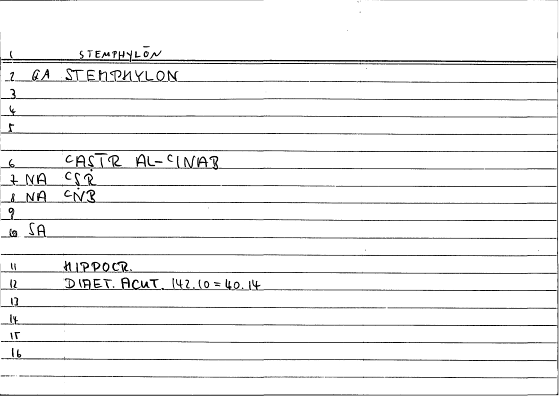 1 STEMPHYLŌN
2 GA STEMPHYLON
3
4
5
6 ᶜAṢĪR AL-ᶜINAB
7 NA ᶜṢR
8 NA ᶜNB
9
10 SA
11 HIPPOCR.
12 DIAET. ACUT. 142.10 = 40.14
13
14
15
16